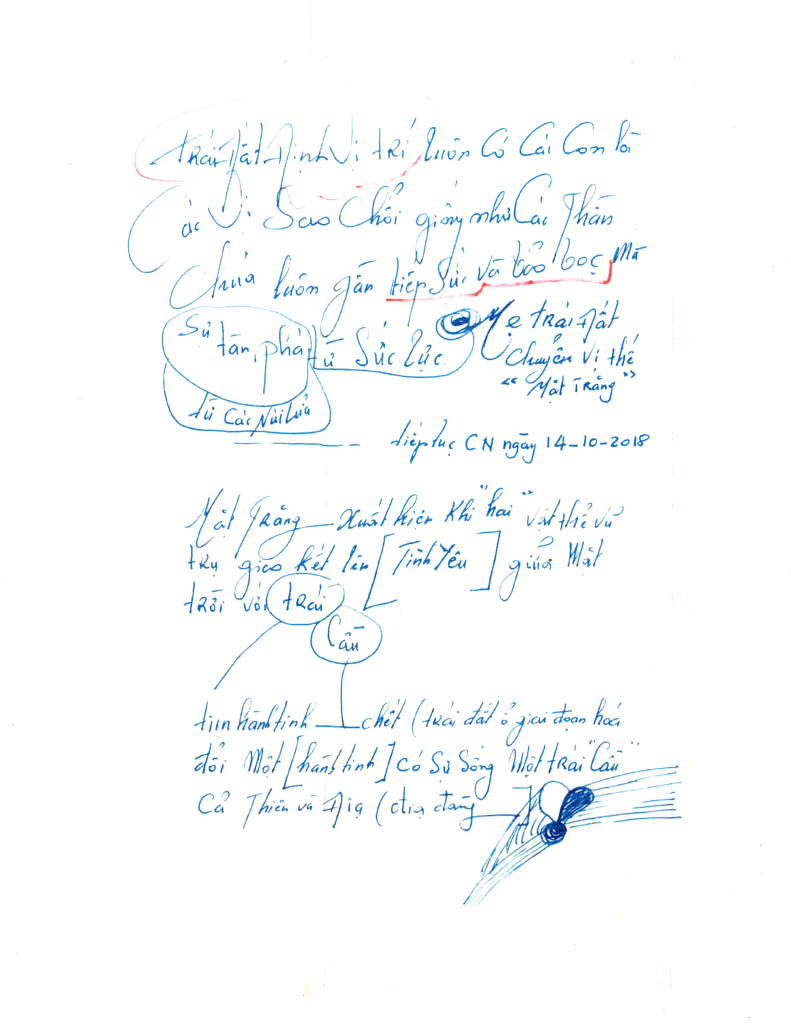 Trái Đất Định Vị trí luôn Có Cái Con lồi
Các Vị Sao Chổi giống như Các Thần
Chúa luôn gần tiếp Sức và bảo bọc Mà
Sự tàn phá từ Sức lực
Mẹ trái Đất
Chuyển Vị thế
"Mặt Trăng"
từ Các Núi Lửa
tiếp tục CN ngày 14-10-2018
Mặt Trăng Xuất hiện Khi "hai" vật thể vũ
trụ giao kết lên [Tình Yêu] giữa Mặt
trời với trái
Cầu
tim hành tinh chết (trái đất ở giai đoạn hoá
đổi Một [hành tinh] có Sự Sống Một trái "Cầu"
Cả Thiên và Địa (địa đàng